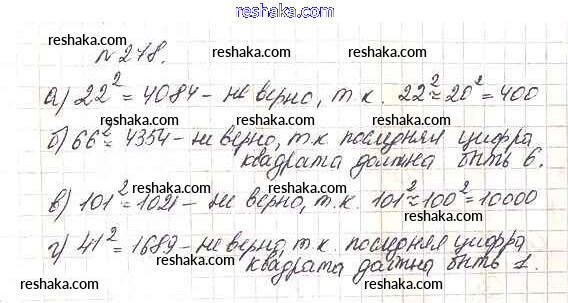 www.reshaka.com
reshaka.com
№ 278.
reshaka.com reshaka.com
а) 22² = 4084 – не верно, т.к. 22² ≈ 20² = 400
reshaka.com reshaka.com
б) 66² = 4354 – не верно, т.к. последняя цифра
квадрата должна быть 6.
reshaka.com reshaka.com
в) 101² = 1021 – не верно, т.к. 101² ≈ 100² = 10000
reshaka.com reshaka.com
г) 41² = 1689 – не верно, т.к. последняя цифра
квадрата должна быть 1.
reshaka.com reshaka.com